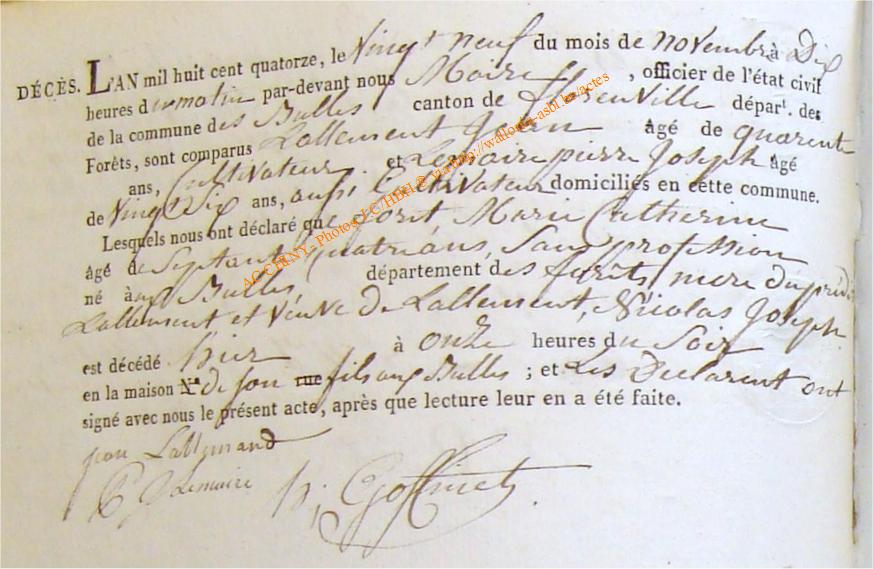 DÉCÈS. L'AN mil huit cent quatorze, le Vingt neuf du mois de novembre à Dix
heures du matin par-devant nous Maire , officier de l'état civil
de la commune des Bulles canton de florenville départ. des
Forêts, sont comparus Lallement Jean âgé de quarente
ans, Cultivateur et Lemaire pierre Joseph âgé
de Vingt Six ans, aussi Cultivateur domiciliés en cette commune.
Lesquels nous ont déclaré que gorit Marie Catherine
âgé de Septante quatre ans, Sans profession
né à aux Bulles, département des forêts mere du predit
Lallement et Veuve de Lallement, Nicolas Joseph
est décédé hier à onze heures du Soir
en la maison N.º de son rue fils aux Bulles ; et Les Declarent ont
signé avec nous le présent acte, après que lecture leur en a été faite.
jean Lallemand
P J Lemaire h; Goffinet
AGCCHNY- Photos J.C/HBH@ http://wallonia-asbl.be/actes